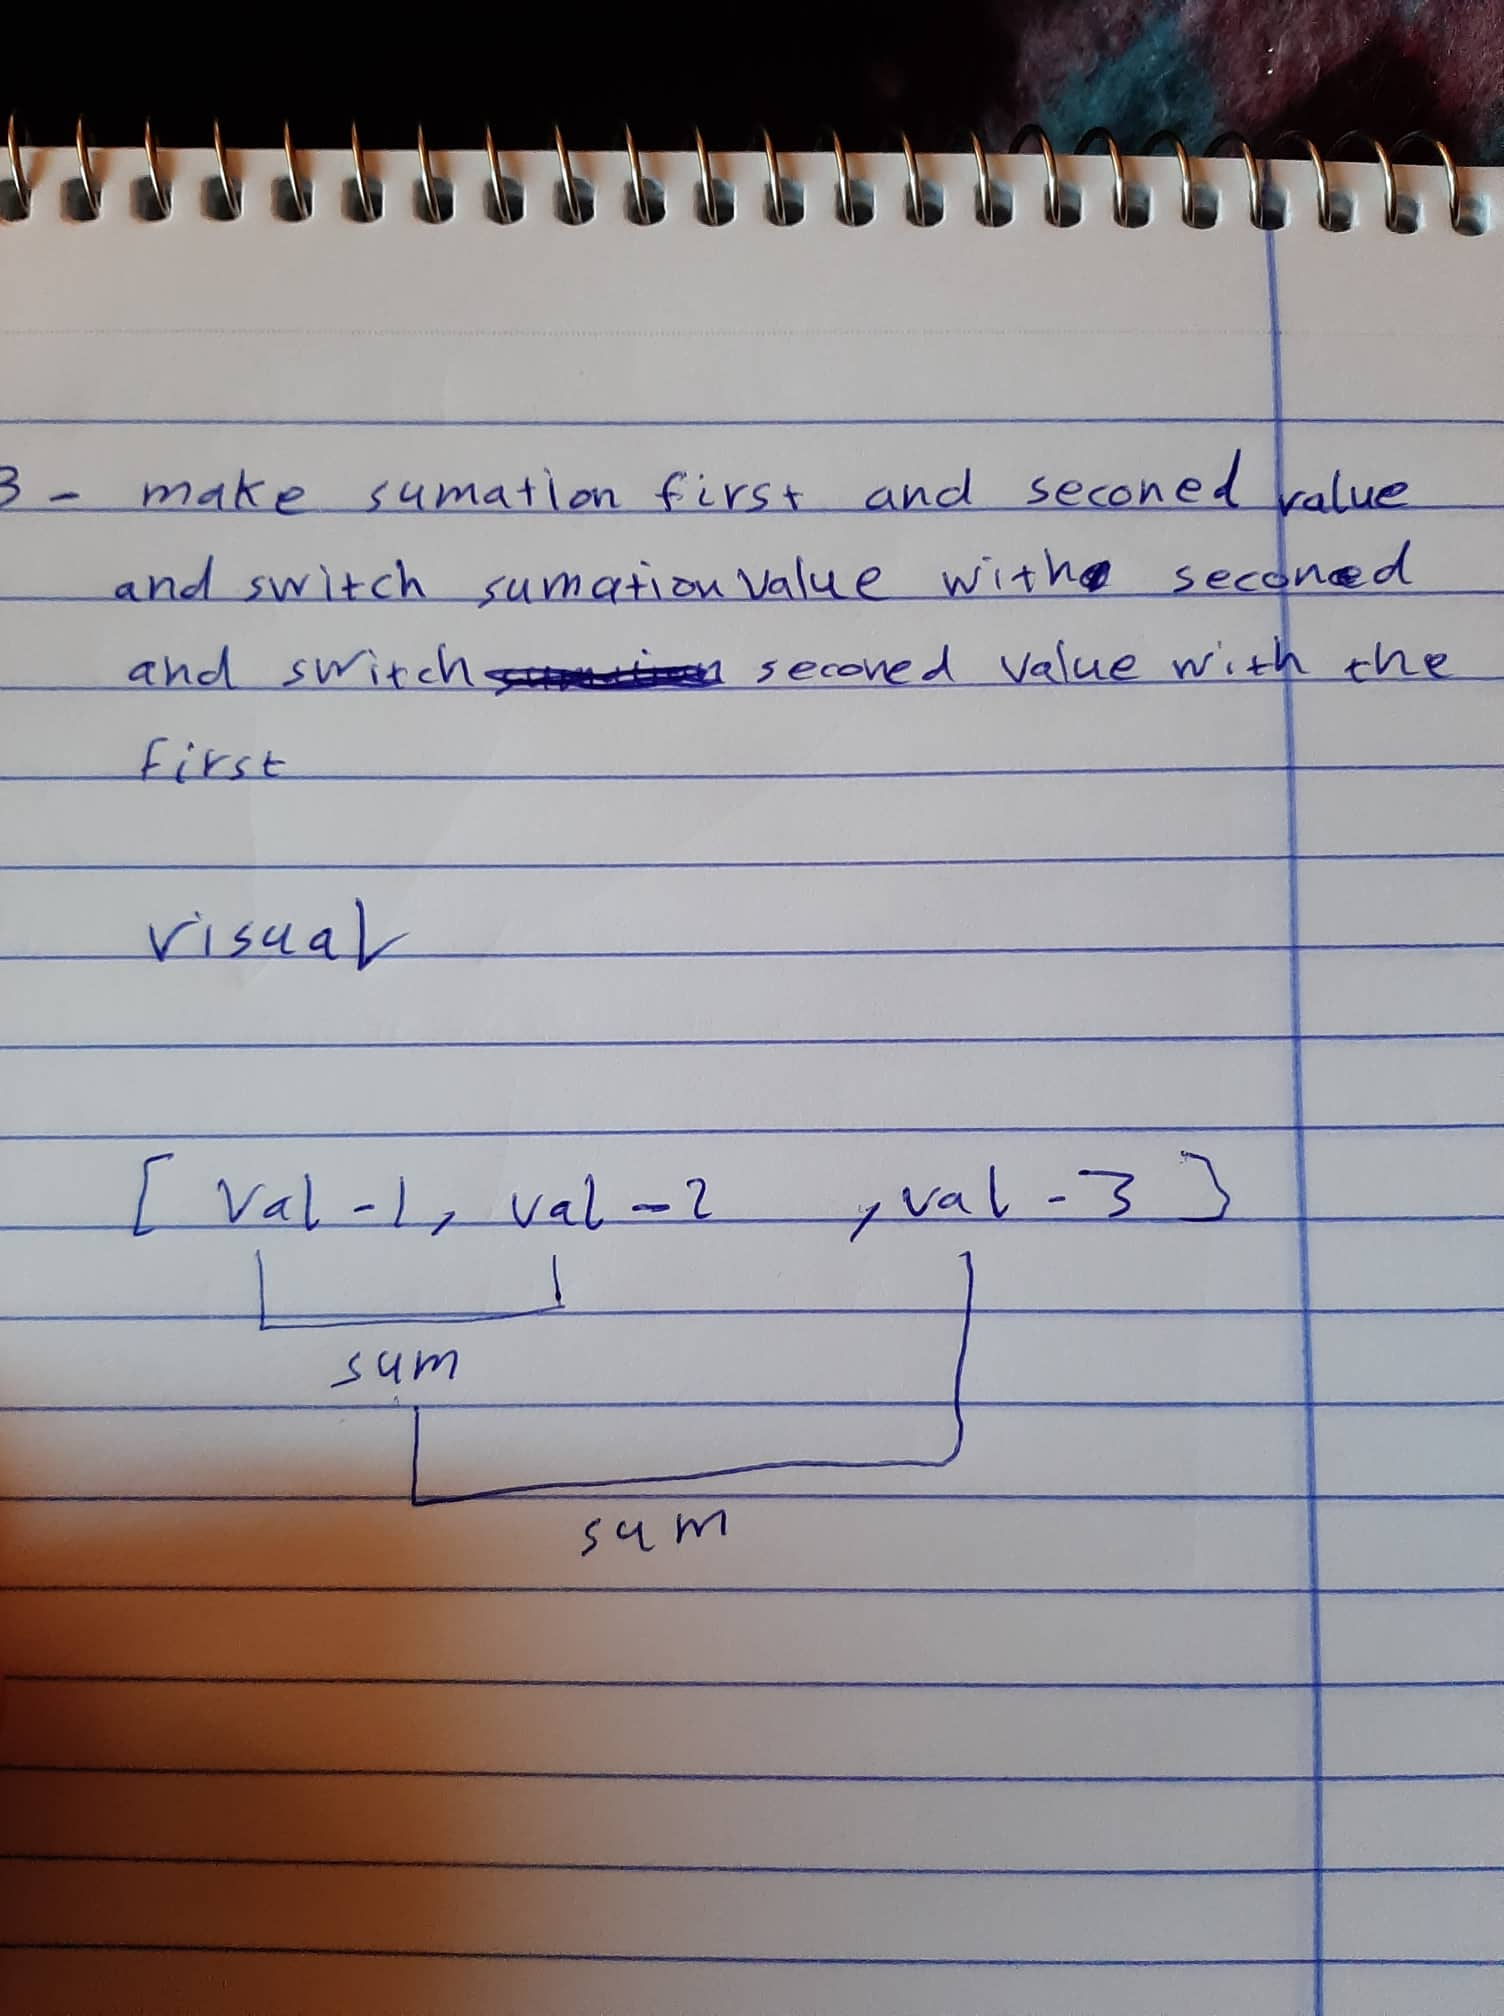 3 - make sumation first and seconed value
and switch sumation value with seconed
and switch seconed value with the
first
visual
[ val-1, val-2 , val-3 ]
sum
sum